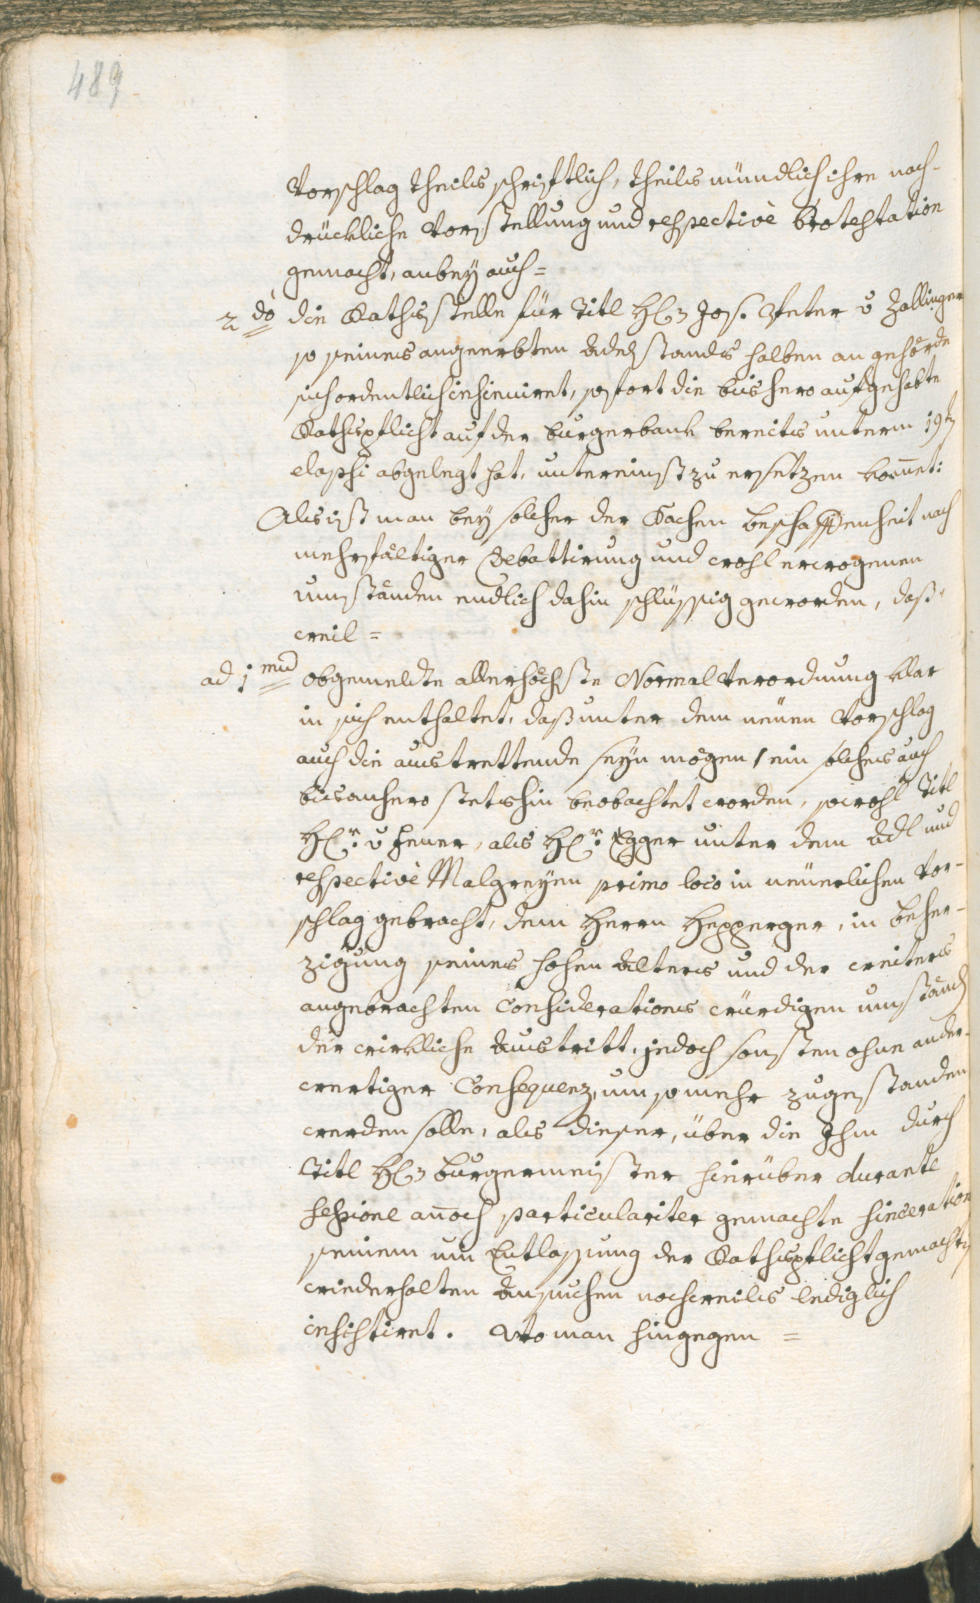 489
Vorschlag theils schriftlich, theils mündlich ihre nach-
drückliche Vorstellung und respectivè Protestation
gemacht, anbey auch =
2do die Rathsstelle für Titl H: Jos. Peter v Zallinger
so seines angeerbten Adelstands halben an gehörde
sich ordentlich insinuiret, sofort die bishero aufgehabte
Rathspflicht auf der burgerbank bereits unterm 19t
elapsi abgelegt hat, untereinst zu ersetzen komet:
Als ist man bey solcher der Sachen beschaffenheit nach
mehrfältiger Debattirung und wohl erwogenen
umständen endlich dahin schlüssig geworden, daß
weil =
ad 1mum obgemeldte allerhöchste Normal Verordnung klar
in sich enthaltet, daß unter dem neüen Vorschlag
auch die austrettende seyn mögen / ein solches auch
bisanhero stetshin beobachtet worden, sowohl Titl
H:r v Feuer, als H:r Egger unter dem Adl und
respectivè Malgreyen primo loco in neüerlichen Vor-
schlag gebracht, dem Herrn Hepperger, in beher-
zigung seines hohen Alters und der weiters
angebrachten Considerations würdigen umständ
der wirkliche Austritt, jedoch sonsten ohne ander-
wertiger Consequenz, um so mehr zugestanden
werden solle, als dieser, über die Ihm durch
Titl H: burgermeister hierüber durante
sessione anoch particulariter gemachte sinceration
seinem um Entlassung der Rathspflicht gemacht
wiederholten Ansuchen nochweils lediglich
insistiret. Wo man hingegen =